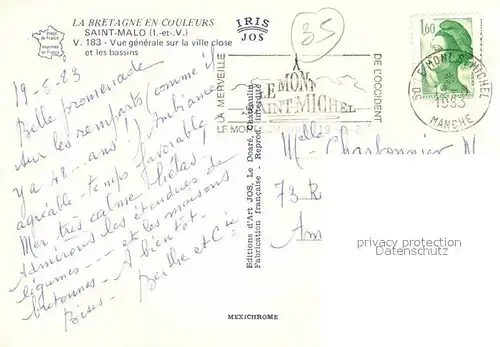 LA BRETAGNE EN COULEURS
SAINT-MALO (I.-et-V.)
V. 183 - Vue générale sur la ville close
et les bassins
IRIS
JOS
35
1,60
19-8-83
Belle promenade
sur les remparts (comme il
y a 48 ans!) Ambiance
agréable temps favorable
Mer très calme hélas!
Admirons les étendues de
légumes --- et les maisons
bretonnes - A bientôt -
Bises - Berthe et Cie
LA MERVEILLE
DE L'OCCIDENT
LE MONT
SAINT MICHEL
LE MONT
50 LE MONT ST MICHEL
1983
MANCHE
Editions d'Art JOS, Le Doaré, Chateaulin
Fabrication française - Reprod. interdite
Melle
M. Charbonnier
73 R
Am
privacy protection
Datenschutz
MEXICHROME